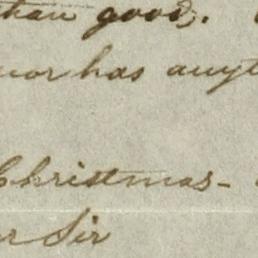 than good.
nor has anyt
Christmas-
r Sir